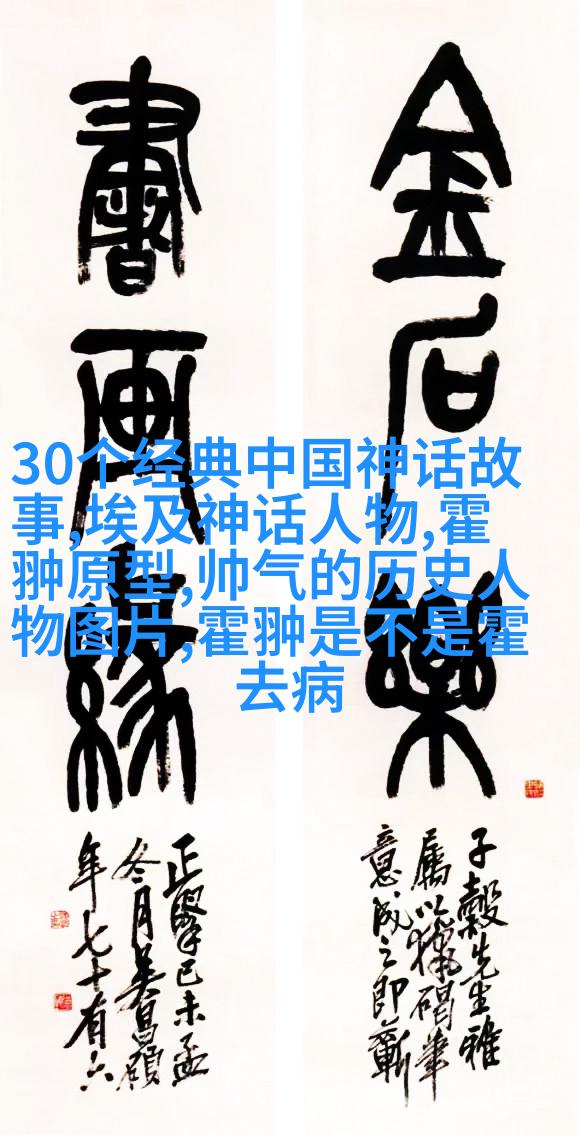 金石樂
子穀先生雅
屬以獵碣筆
意成之即蘄
書画緣
正己未孟
冬月吴昌碩
年七十有六
30个经典中国神话故
事,埃及神话人物,霍
翀原型,帅气的历史人
物图片,霍翀是不是霍
去病